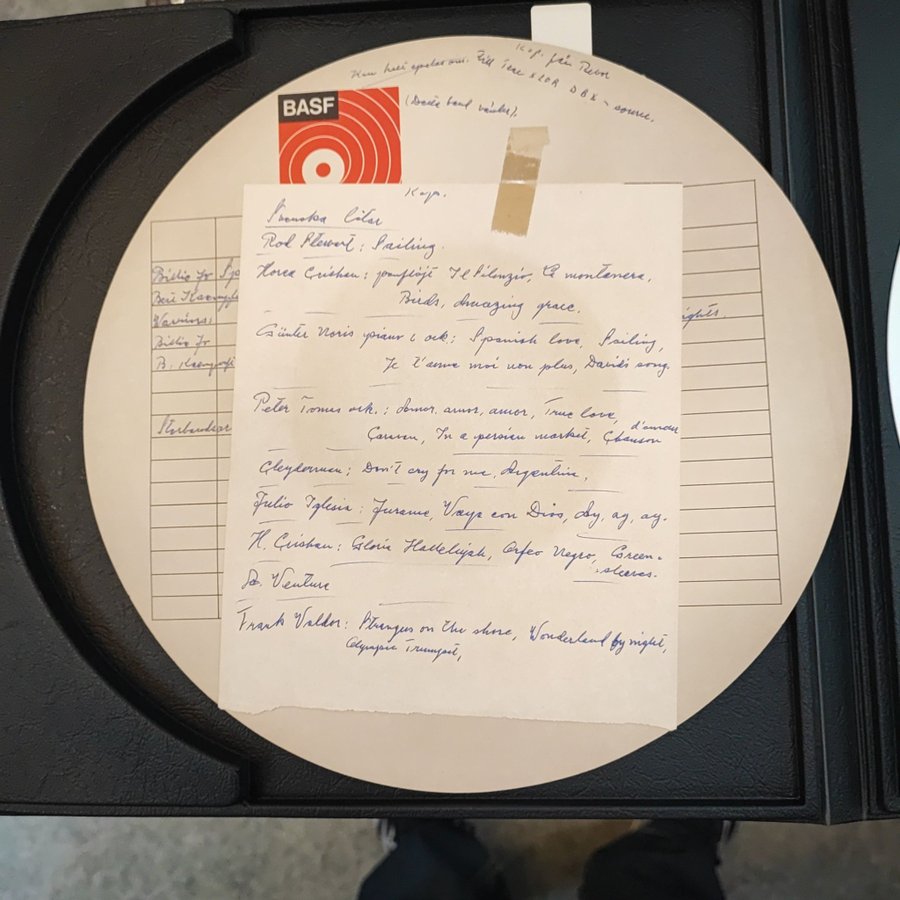 Kop. från
Kan helt spolas om. Till Teac X10R DBX-
BASF
(Detta band vändes).
Kop.
Svenska låtar
Rod Stewart: Sailing.
Horea Crishan: panflöjt Il Silenzio, La montanara,
Birds, Amazing grace.
Günter Noris piano & ork: Spanish love, Sailing,
Je t'aime moi non plus, Davids song.
Peter Tomas ork.: Amor, amor, amor, True love,
Caravan, In a persian market, Chanson d'amour
Cleyderman; Don't cry for me, Argentina,
Julio Iglesia: Jurame, Vaya con Dios, Ay, ay, ay.
H. Crishan: Gloria Halleluja, Orfeo Negro, Green-
sleeves.
Venture
Frank Valdor: Strangers on the shore, Wonderland by night,
Olympic Trumpet,
Billie Jo Sp
Bert Kaempfe
ights
Billie Jo
B. Kaempf